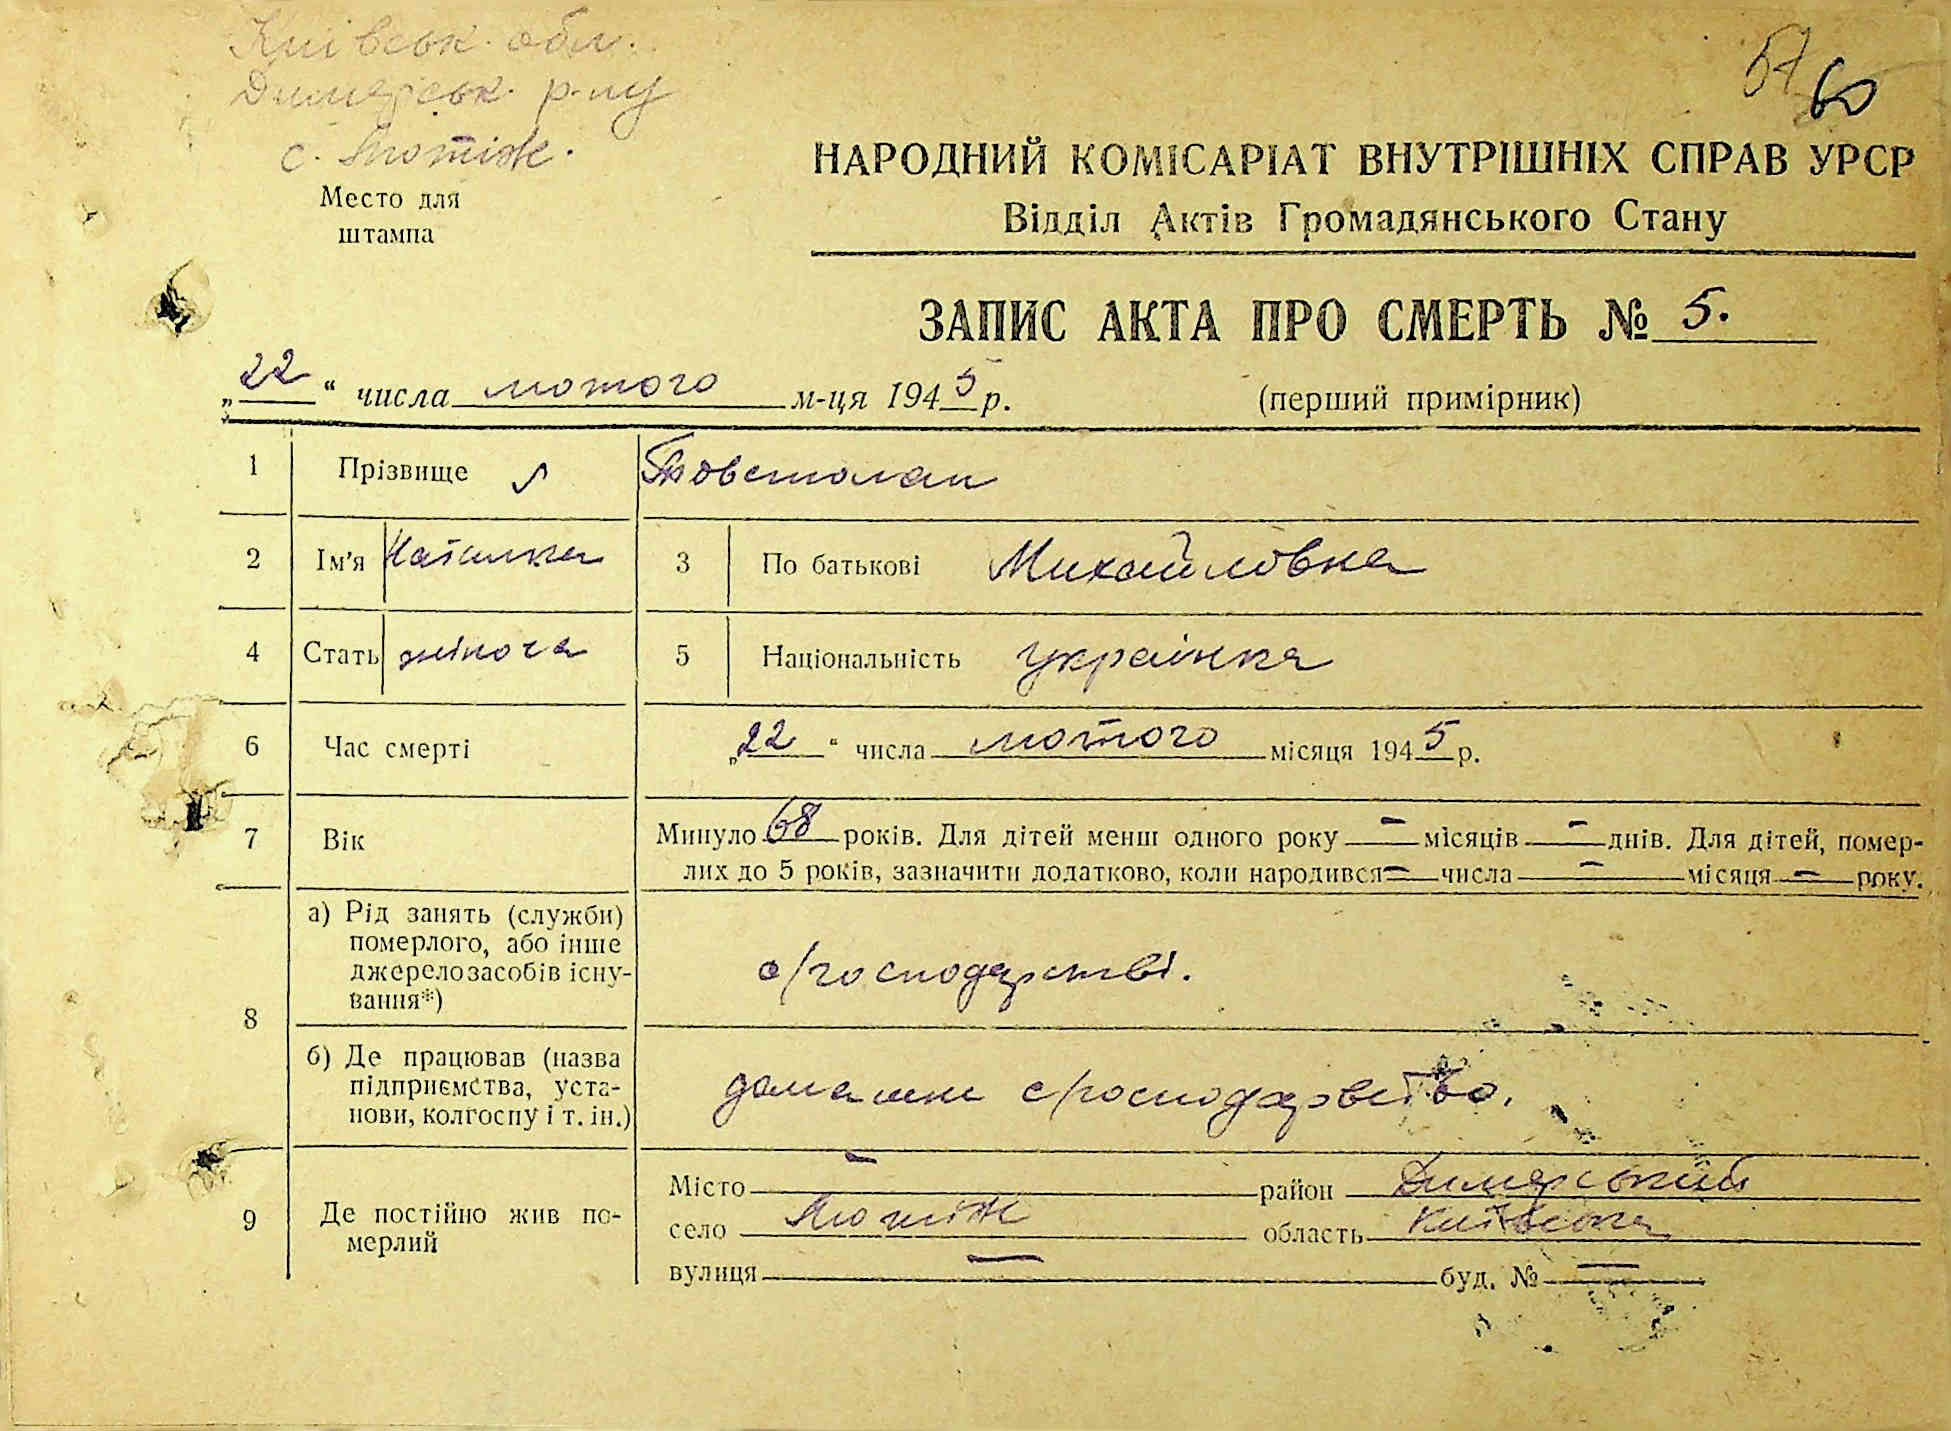 Київськ. обл.
Димерськ. р-ну
с. Лютіж.
Место для
штампа
57 60
НАРОДНИЙ КОМІСАРІАТ ВНУТРІШНІХ СПРАВ УРСР
Відділ Актів Громадянського Стану
ЗАПИС АКТА ПРО СМЕРТЬ № 5.
„22“ числа лютого м-ця 1945 р. (перший примірник)
1 Прізвище Товстолап
2 Ім'я Наталка 3 По батькові Михайловна
4 Стать жіноча 5 Національність українка
6 Час смерті „22“ числа лютого місяця 1945 р.
7 Вік Минуло 68 років. Для дітей менш одного року — місяців — днів. Для дітей, помер-
лих до 5 років, зазначити додатково, коли народився — числа — місяця — року.
8 а) Рід занять (служби)
померлого, або інше
джерело засобів існу-
вання*) с/господарстві.
б) Де працював (назва
підприємства, уста-
нови, колгоспу і т. ін.) домашне с/господарство.
9 Де постійно жив по-
мерлий
Місто — район Димерський
село Лютіж область Київська
вулиця — буд. № —